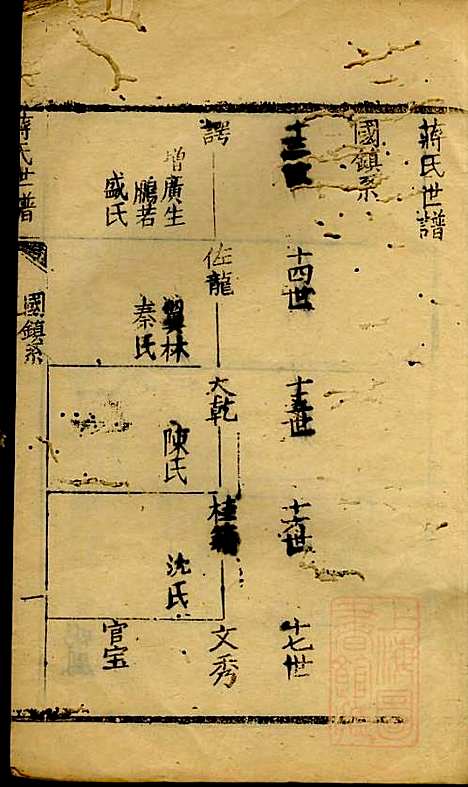 蔣氏世譜
國鎮系
十四世
十五世
十六世
十七世
諤
佐龍
大乾
桂
文秀
增廣生
鵬若
盛氏
翼林
秦氏
陳氏
沈氏
官宝
蔣氏世譜
國鎮系
一